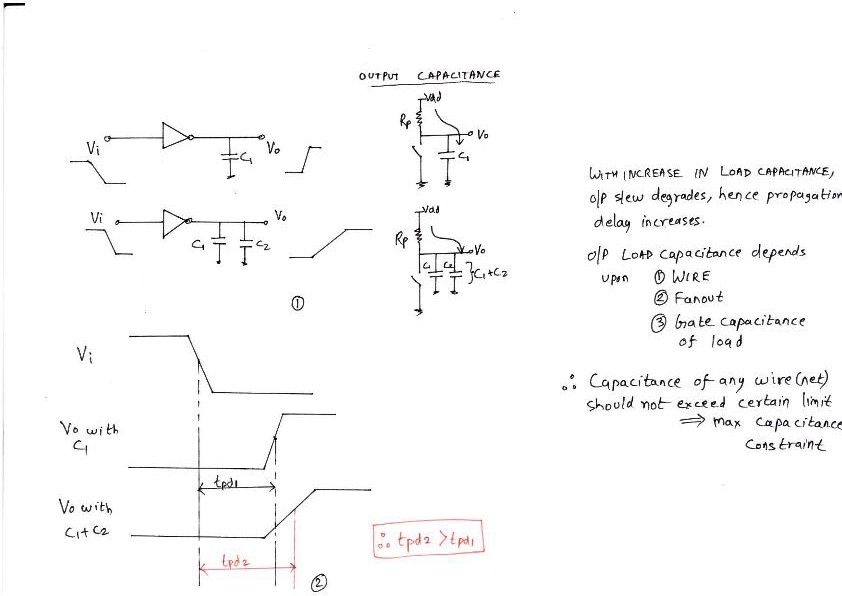 OUTPUT CAPACITANCE
Vi
C1
Vo
Vdd
Rp
Vo
C1
Vi
C1
C2
Vo
Vdd
Rp
Vo
C1
C2
C1+C2
①
WITH INCREASE IN LOAD CAPACITANCE,
o/p slew degrades, hence propagation
delay increases.
o/p LOAD Capacitance depends
upon ① WIRE
② Fanout
③ Gate capacitance
of load
∴ Capacitance of any wire(net)
should not exceed certain limit
⇒ max capacitance
Constraint
Vi
Vo with
C1
tpd1
Vo with
C1+C2
tpd2
∴ tpd2 > tpd1
②